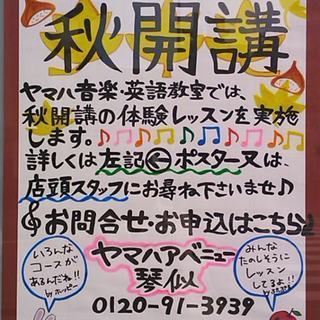 秋開講
ヤマハ音楽・英語教室では、
秋開講の体験レッスンを実施
します。♪♫♪♫♪♫♪♫
詳しくは左記←ポスター又は、
店頭スタッフにお尋ね下さいませ♪
お問合せ・お申込はこちら
ヤマハアベニュー
琴似
0120-91-3939
いろんな
コースが
あるんだね!!
by ホッピー
みんな
たのしそうに
レッスン
してるよ!!